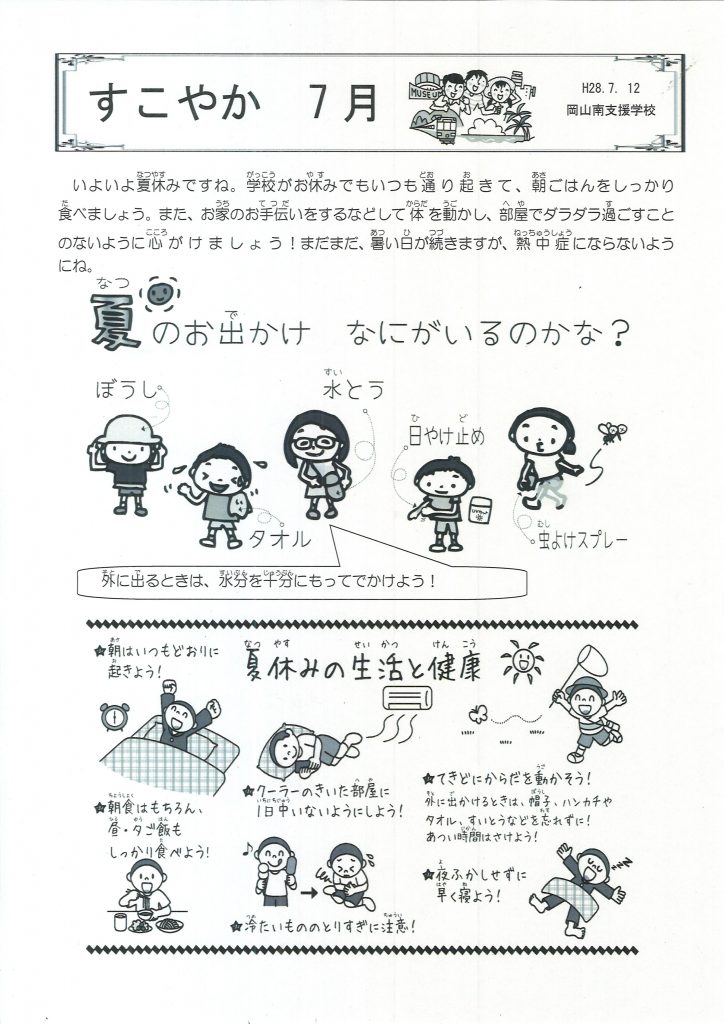 すこやか　７月
MUSEUM
H28.7. 12
岡山南支援学校
いよいよ夏休みですね。学校がお休みでもいつも通り起きて、朝ごはんをしっかり
食べましょう。また、お家のお手伝いをするなどして体を動かし、部屋でダラダラ過ごすこと
のないように心がけましょう！まだまだ、暑い日が続きますが、熱中症にならないよう
にね。
夏のお出かけ　なにがいるのかな？
ぼうし
水とう
日やけ止め
タオル
虫よけスプレー
外に出るときは、水分を十分にもってでかけよう！
夏休みの生活と健康
★朝はいつもどおりに
起きよう！
★クーラーのきいた部屋に
1日中いないようにしよう！
★てきどにからだを動かそう！
外に出かけるときは、帽子、ハンカチや
タオル、すいとうなどを忘れずに！
あつい時間はさけよう！
★朝食はもちろん、
昼・夕ご飯も
しっかり食べよう！
★冷たいもののとりすぎに注意！
★夜ふかしせずに
早く寝よう！
zzz